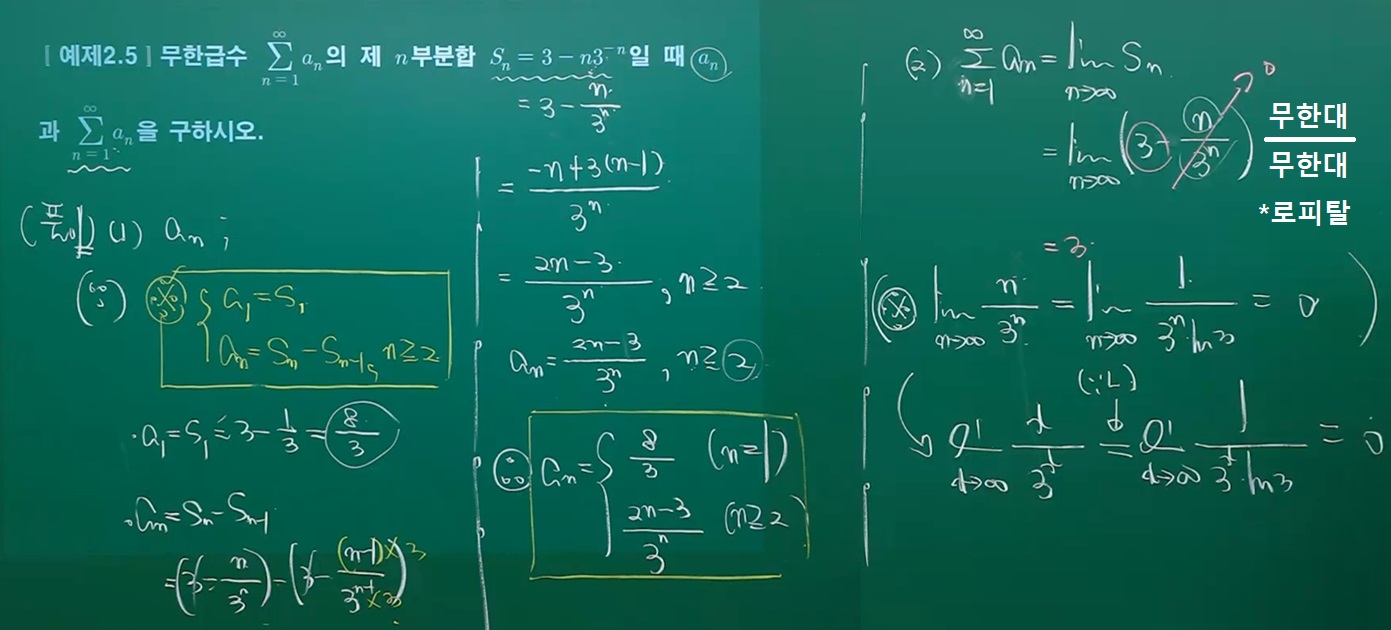 [ 예제2.5 ] 무한급수 $\sum_{n=1}^{\infty} a_n$의 제 n부분합 $S_n = 3 - n3^{-n}$일 때 $a_n$
$= 3 - \frac{n}{3^n}$
과 $\sum_{n=1}^{\infty} a_n$을 구하시오.
(풀이) (1) $a_n$ ;
(∵) ※ $\begin{cases} a_1 = S_1 \\ a_n = S_n - S_{n-1}, n \geq 2 \end{cases}$
· $a_1 = S_1 = 3 - \frac{1}{3} = \frac{8}{3}$
· $a_n = S_n - S_{n-1}$
$= \left(3 - \frac{n}{3^n}\right) - \left(3 - \frac{(n-1) \times 3}{3^{n-1} \times 3}\right)$
$= \frac{-n + 3(n-1)}{3^n}$
$= \frac{2n-3}{3^n}, n \geq 2$
$a_n = \frac{2n-3}{3^n}, n \geq 2$
∴ $a_n = \begin{cases} \frac{8}{3} & (n=1) \\ \frac{2n-3}{3^n} & (n \geq 2) \end{cases}$
(2) $\sum_{n=1}^{\infty} a_n = \lim_{n \to \infty} S_n$
$= \lim_{n \to \infty} \left(3 - \frac{n}{3^n}\right)$ 0
무한대
무한대
*로피탈
$= 3$
(※ $\lim_{n \to \infty} \frac{n}{3^n} = \lim_{n \to \infty} \frac{1}{3^n \cdot \ln 3} = 0$ )
(∵L)
$\lim_{x \to \infty} \frac{x}{3^x} = \lim_{x \to \infty} \frac{1}{3^x \cdot \ln 3} = 0$